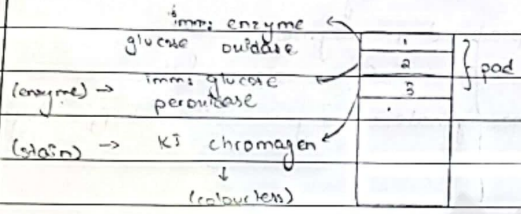 imm: enzyme
glucose oxidase
1
2
3
} pad
(enzyme) → imm: glucose
peroxidase
(stain) → KI chromagen
↓
(colourless)